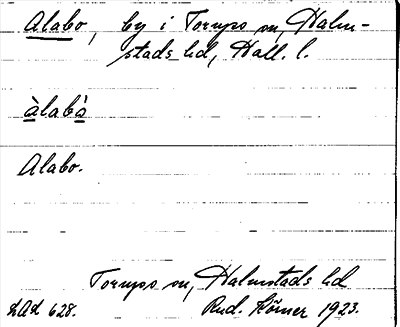 Alabo, by i Torups sn, Halm-
stads hd, Hall. l.
àlabà
Alabo.
Torups sn, Halmstads hd
LAL 628. Rud. Körner 1923.